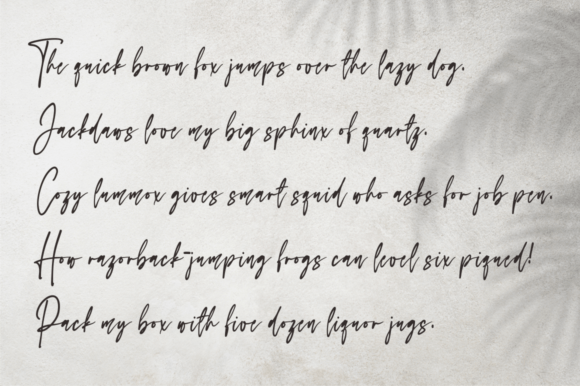 The quick brown fox jumps over the lazy dog.
Jackdaws love my big sphinx of quartz.
Cozy lummox gives smart squid who asks for job pen.
How razorback-jumping frogs can level six piqued!
Pack my box with five dozen liquor jugs.